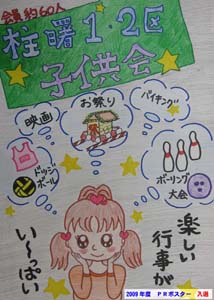 会員約60人
柱曙1.2区
子供会
映画
お祭り
バイキング
ドッジ
ボール
ボーリング
大会
楽しい
行事が
い〜っぱい
2009年度 PRポスター 入選